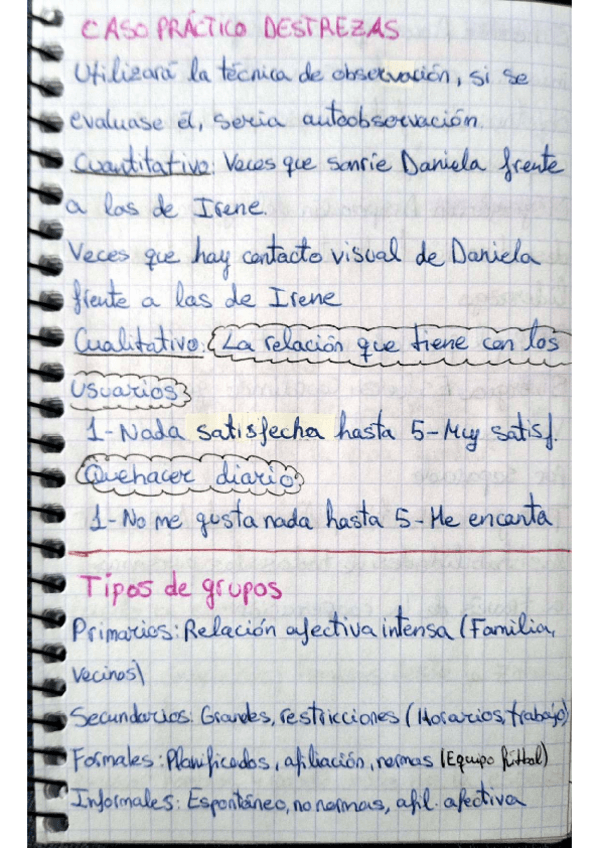 CASO PRÁCTICO DESTREZAS
Utilizará la técnica de observación, si se
evaluase él, sería autoobservación
Cuantitativo: Veces que sonríe Daniela frente
a las de Irene.
Veces que hay contacto visual de Daniela
frente a las de Irene
Cualitativo: La relación que tiene con los
usuarios
1-Nada satisfecha hasta 5-Muy satisf.
Quehacer diario
1-No me gusta nada hasta 5-Me encanta
Tipos de grupos
Primarios: Relación afectiva intensa (Familia,
vecinos)
Secundarios: Grandes, restricciones (Horarios, trabajo)
Formales: Planificados, afiliación, normas (Equipo fútbol)
Informales: Espontáneo, no normas, afil. afectiva